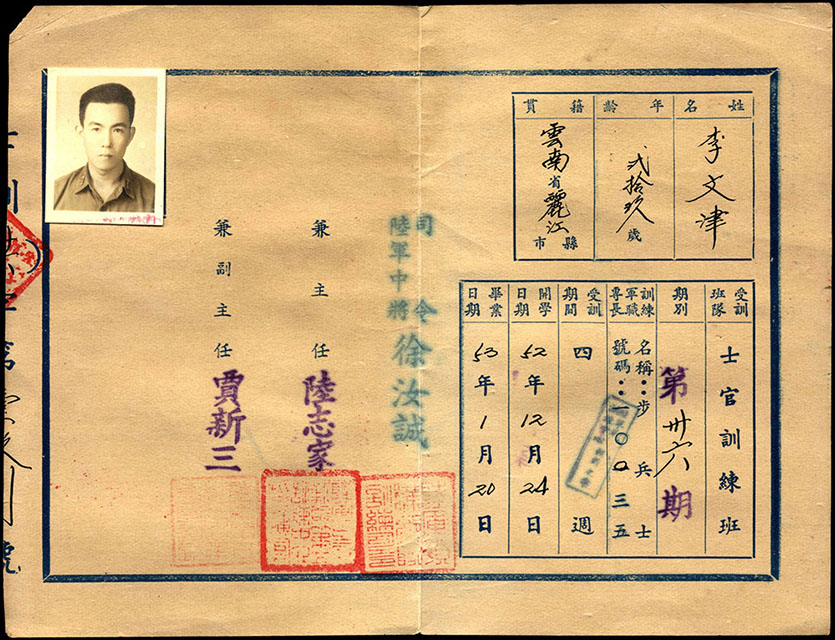 姓名
李文津
年齡
弍拾玖歲
籍貫
雲南省麗江
縣市
受訓班隊
士官訓練班
期別
第卅六期
訓練軍職專長
名稱：步兵士
號碼：一〇〇三五
受訓期間
四週
開學日期
52年12月24日
畢業日期
53年1月20日
司令
陸軍中將
徐汝誠
兼主任
陸志家
兼副主任
賈新三